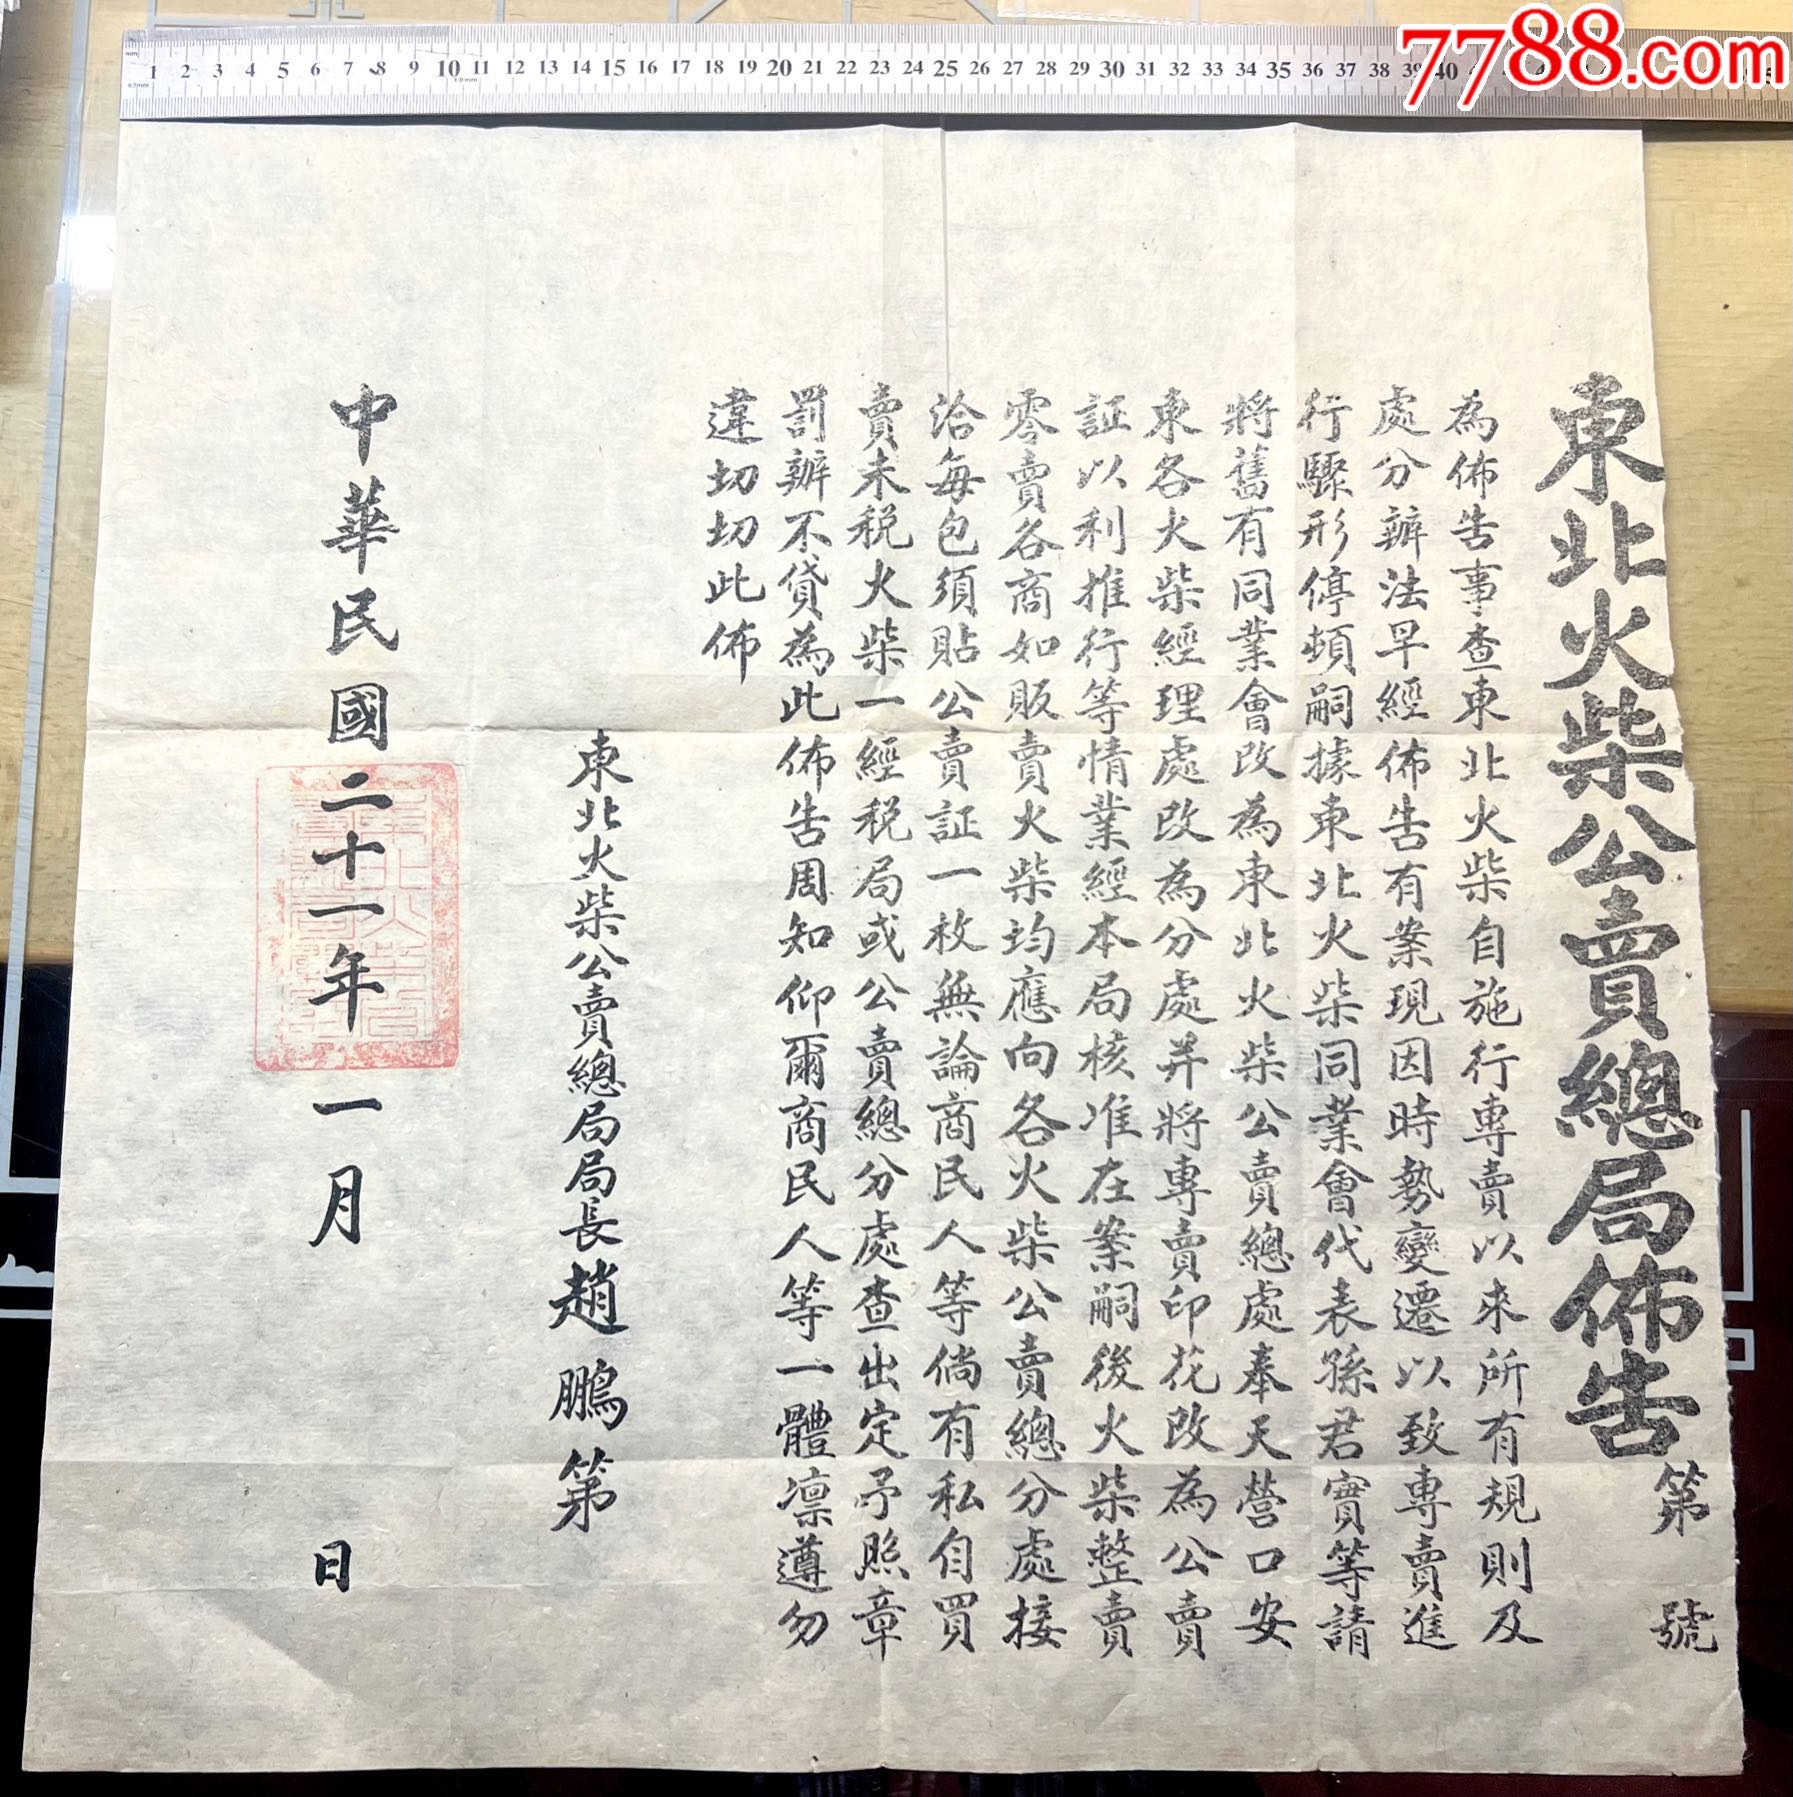 7788.com
1 2 3 4 5 6 7 8 9 10 11 12 13 14 15 16 17 18 19 20 21 22 23 24 25 26 27 28 29 30 31 32 33 34 35 36 37 38 39 40
東北火柴公賣總局佈告第 號
為佈告事查東北火柴自施行專賣以來所有規則及
處分辦法早經佈告有案現因時勢變遷以致專賣進
行驟形停頓嗣據東北火柴同業會代表孫君實等請
將舊有同業會改為東北火柴公賣總處奉天營口安
東各火柴經理處改為分處并將專賣印花改為公賣
証以利推行等情業經本局核准在案嗣後火柴整賣
零賣各商如販賣火柴均應向各火柴公賣總分處接
洽每包須貼公賣証一枚無論商民人等倘有私自買
賣未税火柴一經税局或公賣總分處查出定予照章
罰辦不貸為此佈告周知仰爾商民人等一體凛遵勿
違切切此佈
東北火柴公賣總局局長趙鵬第
中華民國二十一年一月 日